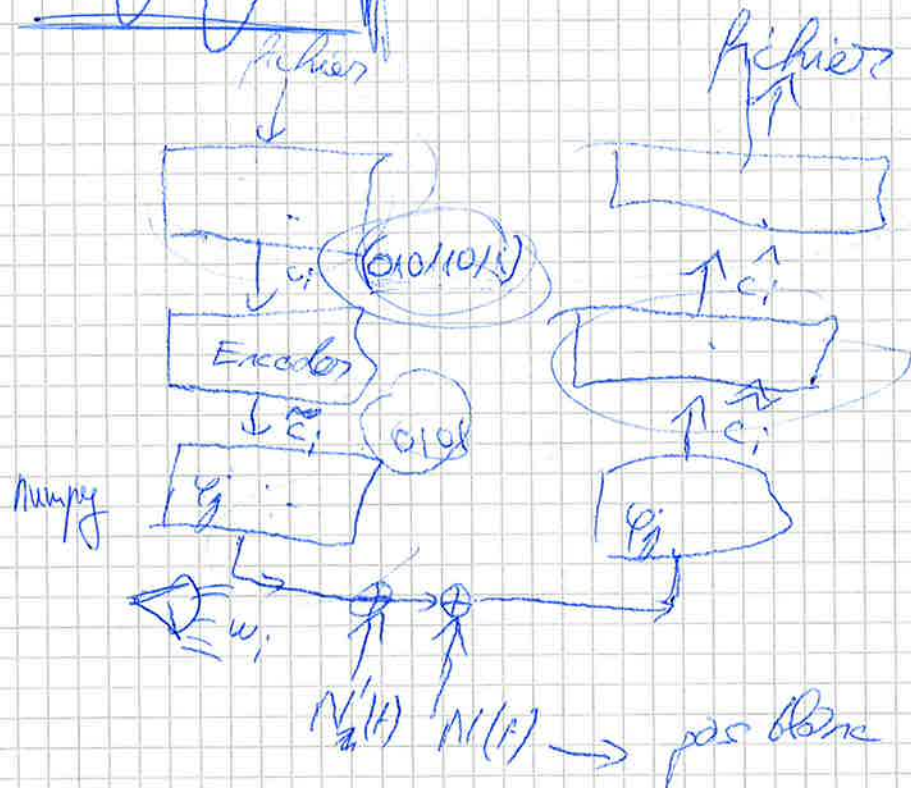 fichier
fichier
c_i
(010/10/1)
ĉ_i
Encoder
c̃_i
0101
φ_j
numpy
φ_j
w_i
N(t)
pas blanc